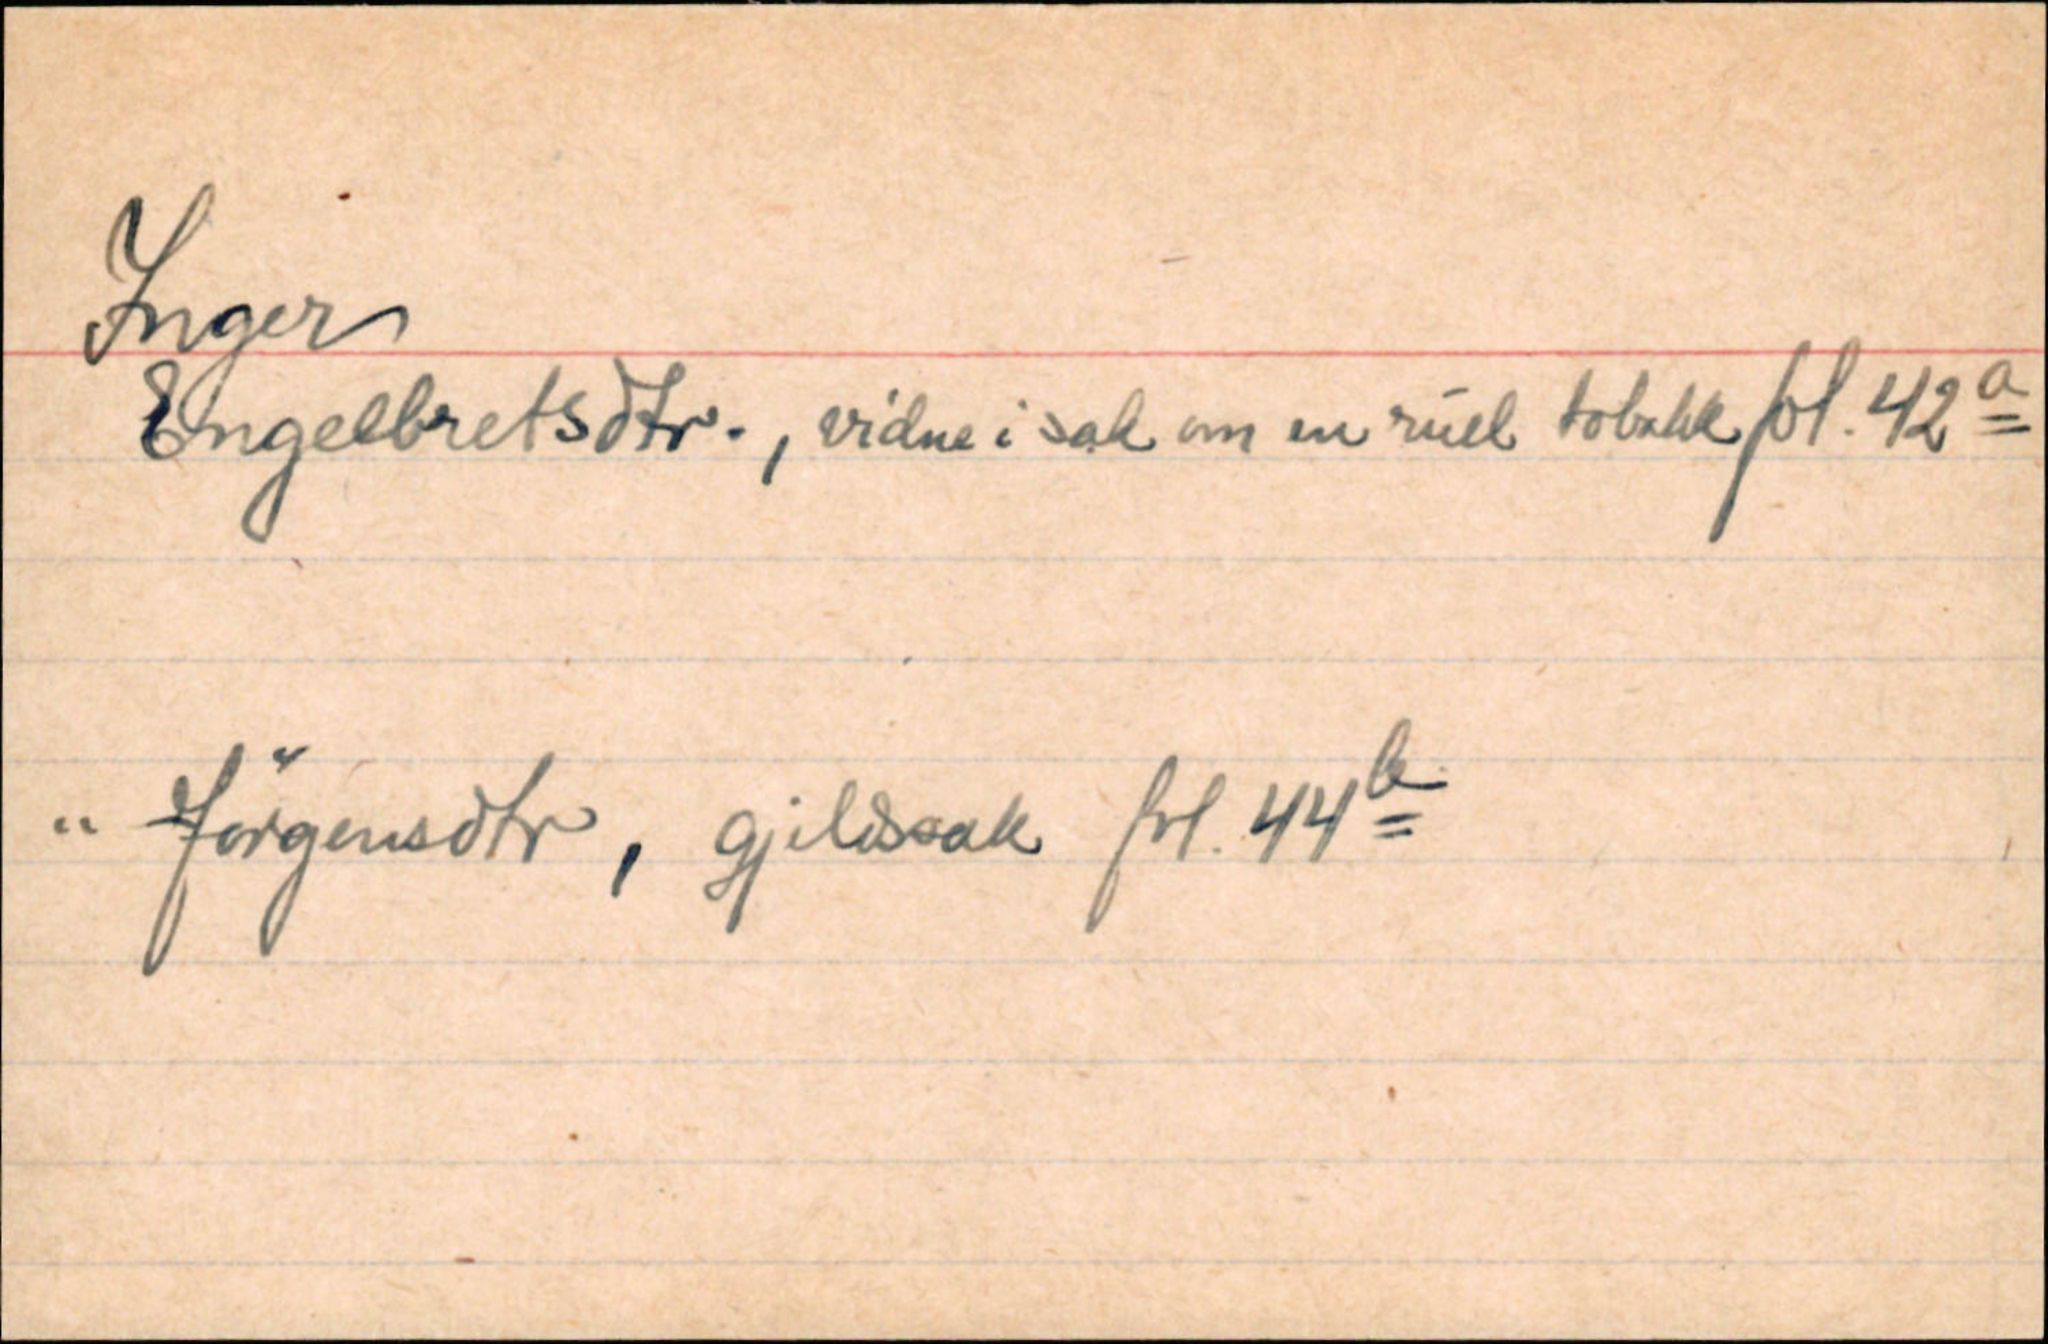 Inger
Engelbretsdtr., vidne i sak om en rúel tobakk fol. 42a
" Jörgensdtr, gjeldssak fol. 44b